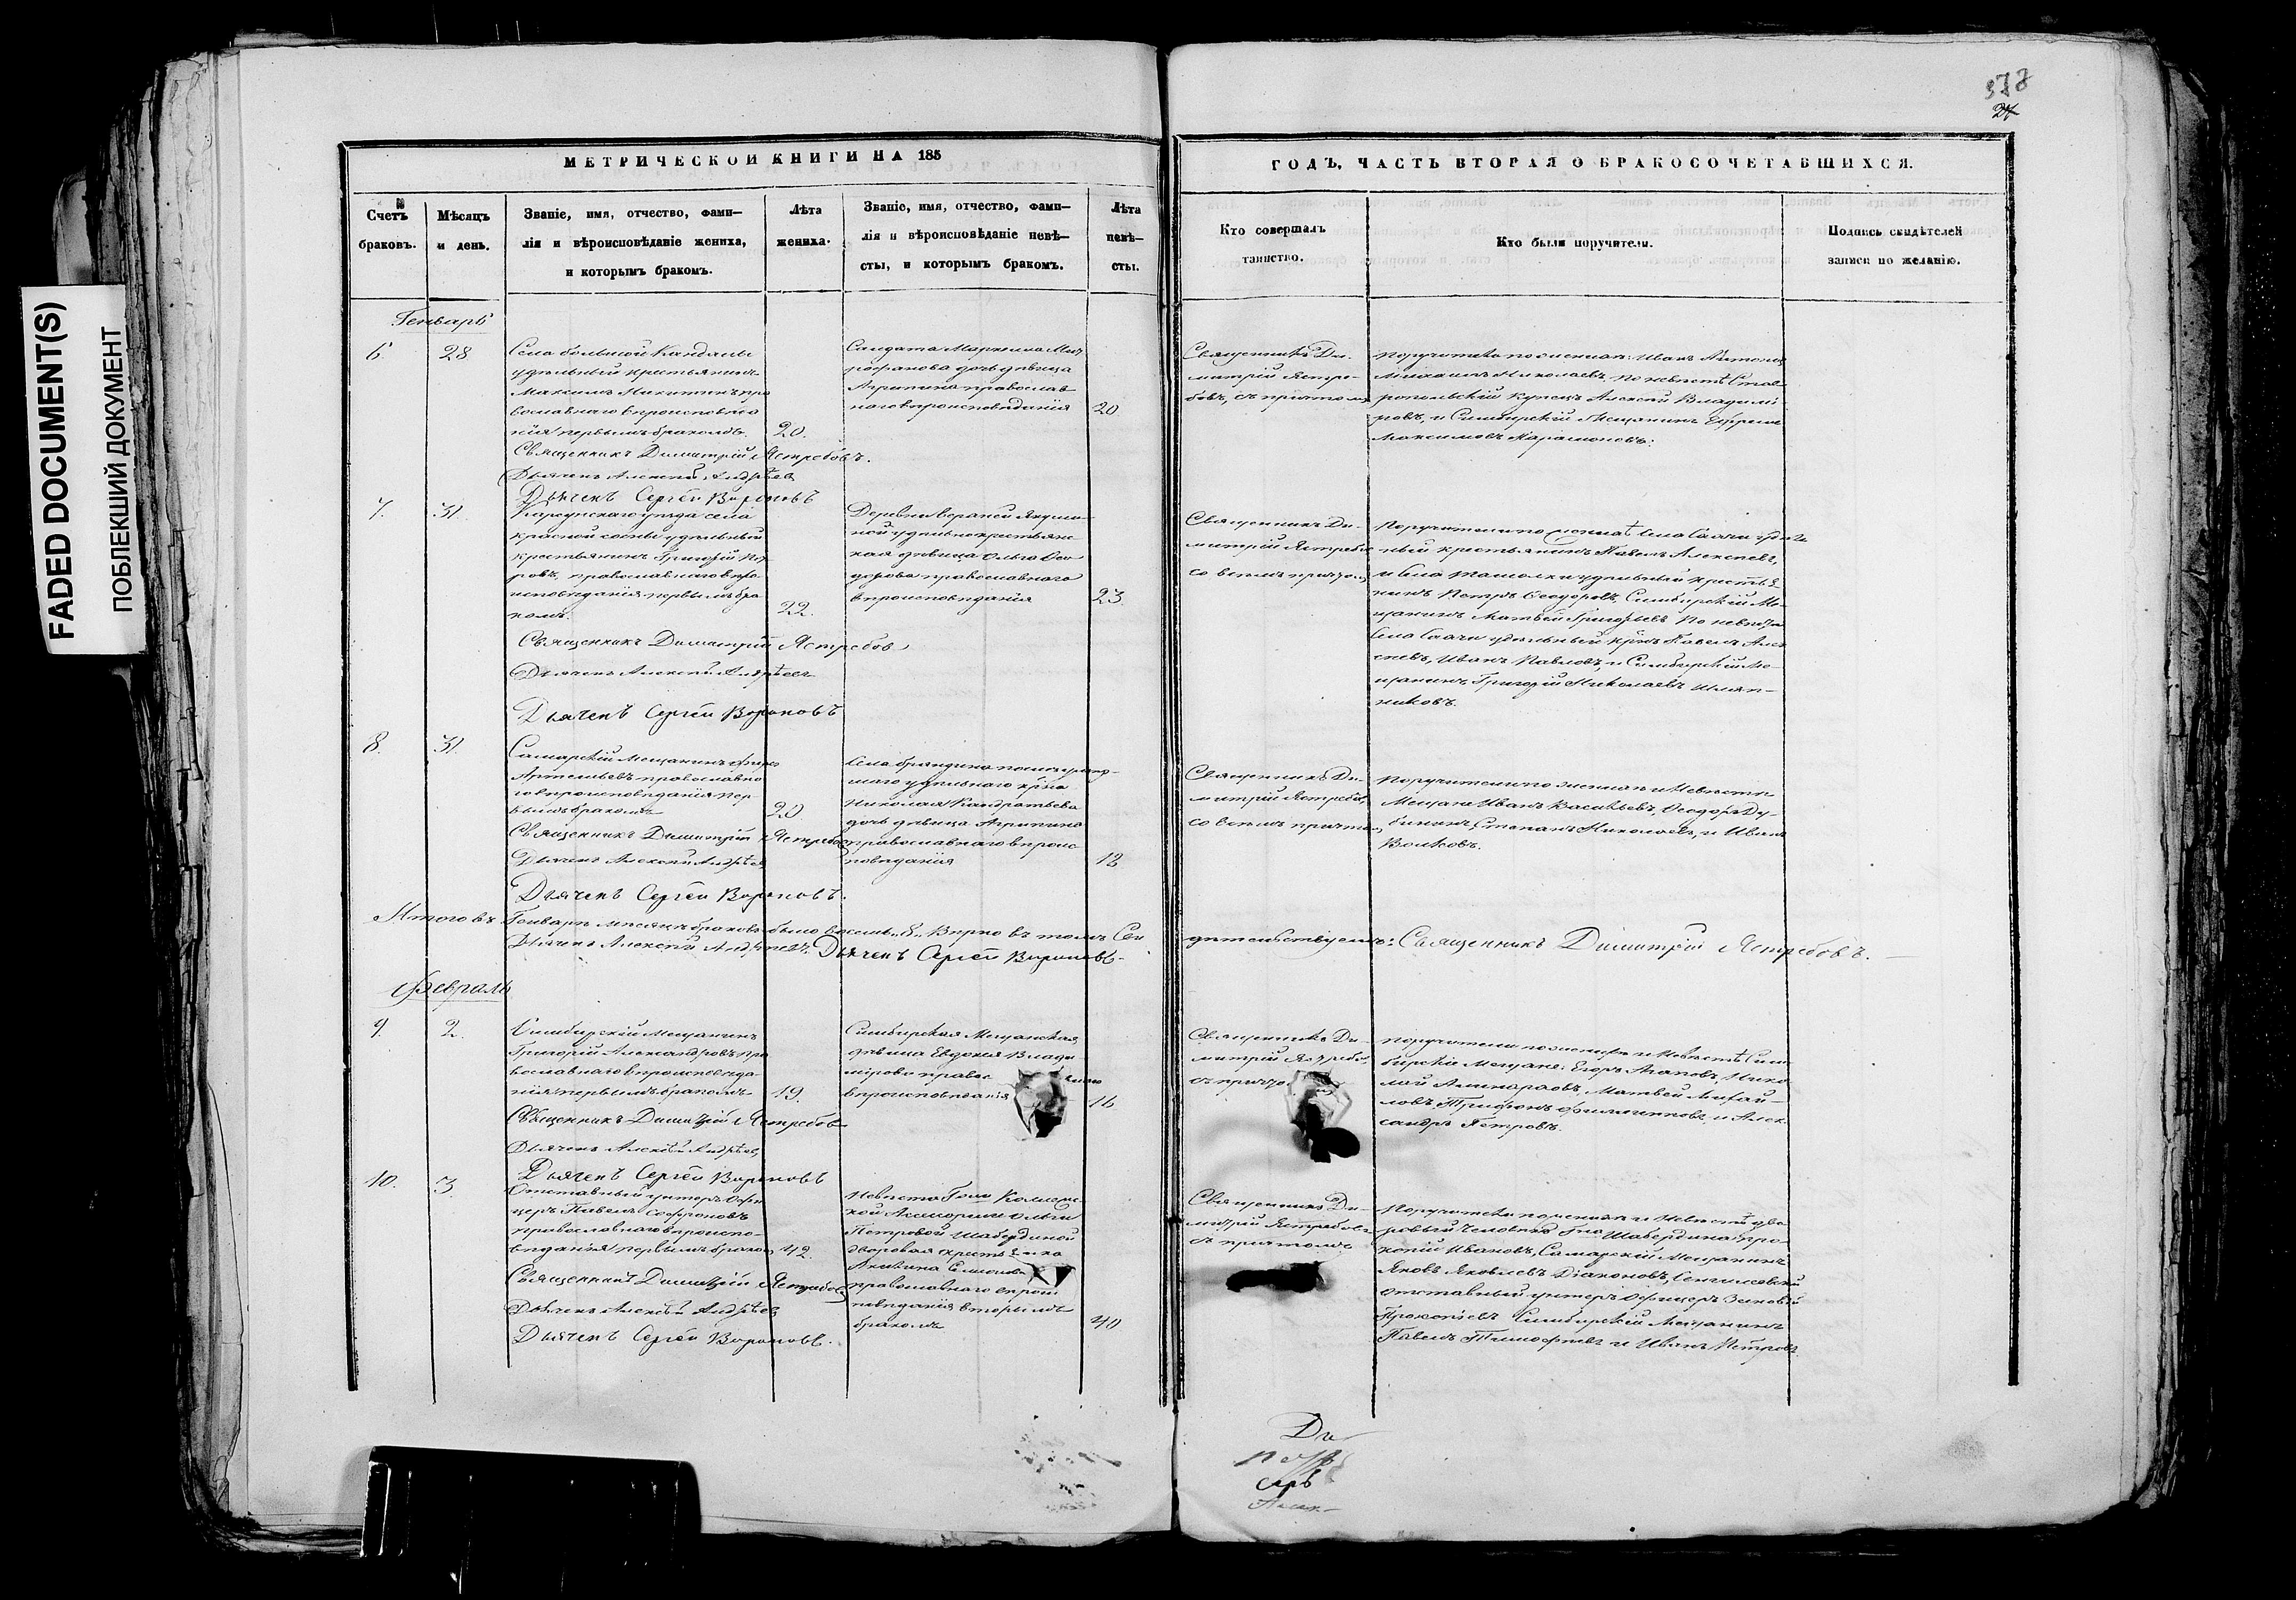 FADED DOCUMENT(S)
ПОБЛЕКШИЙ ДОКУМЕНТ
378
24
МЕТРИЧЕСКОЙ КНИГИ НА 185
Счетъ браковъ.
Мѣсяцъ и день.
Званіе, имя, отчество, фами-
лія и вѣроисповѣданіе жениха,
и которымъ бракомъ.
Лѣта
жениха.
Званіе, имя, отчество, фами-
лія и вѣроисповѣданіе невѣ-
сты, и которымъ бракомъ.
Лѣта
невѣ-
сты.
ГОДЪ, ЧАСТЬ ВТОРАЯ О БРАКОСОЧЕТАВШИХСЯ.
Кто совершалъ
таинство.
Кто были поручители.
Подпись свидѣтелей
записи по желанію.
Генварь
6
28
Села большой Кандалы
удѣльный крестьянинъ
Максимъ Никитинъ пра
вославнаго вѣроисповѣда
нія первымъ бракомъ.
20.
Солдата Маркелла Мит
рофанова дочь дѣвица
Агрипина православ
наго вѣроисповѣданія
20
Священникъ Ди-
митрій Ястре-
бовъ, съ причтомъ
Поручители по женихѣ: Иванъ Антоновъ
Михаилъ Николаевъ, по невѣстѣ Став
ропольскій купецъ Алексѣй Владимі-
ровъ, и Симбирскій Мещанинъ Ефремъ
Максимовъ
Священникъ Димитрій Ястребовъ.
Дьячекъ Алексѣй Андрѣевъ
Дьячекъ Сергѣй Вороновъ
7.
31.
Карсунскаго уѣзда села
красной сосны удѣльный
крестьянинъ Григорій Пет
ровъ, православнаго вѣро
исповѣданія первымъ бра
комъ.
22.
Деревни верхней Якуши
ной удѣльно крестьянс
кая дѣвица Ольга Ѳео
дорова православнаго
вѣроисповѣданія
23.
Священникъ Ди-
митрій Ястребовъ
со всѣмъ причтомъ
Поручители по женихѣ Села
ный крестьянинъ Павелъ Алексѣевъ,
и Села Ташолки удѣльный крестья
нинъ Петръ Ѳеодоровъ, Симбирскій Ме-
щанинъ Матвѣй Григорьевъ По невѣстѣ
Села удѣльный крнъ Павелъ Алек
сѣевъ, Иванъ Павловъ, и Симбирскій Ме-
щанинъ Григорій Николаевъ Шляп-
никовъ.
Священникъ Димитрій Ястребовъ
Дьячекъ Алексѣй Андрѣевъ
Дьячекъ Сергѣй Вороновъ
8.
31.
Самарскій Мещанинъ
Артемьевъ православна
го вѣроисповѣданія пер
вымъ бракомъ
20.
Села брандина
удѣльнаго крна
Николая Кандратьева
дочь дѣвица Агрипина
православнаго вѣроис
повѣданія
18
Священникъ Ди-
митрій Ястребовъ
со всѣмъ причтомъ
Поручители по женихѣ и Невѣстѣ
Мещане Иванъ Васильевъ, Ѳеодоръ Ду-
бининъ, Степанъ Николаевъ, и Иванъ
Волковъ.
Священникъ Димитрій Ястребовъ
Дьячекъ Алексѣй Андрѣевъ
Дьячекъ Сергѣй Вороновъ.
Итого въ Генварѣ мѣсяцѣ браковъ было восемь „8„ Вѣрно въ томъ Сви
дѣтельствуемъ: Священникъ Димитрій Ястребовъ.
Дьячекъ Алексѣй Андрѣевъ. Дьячекъ Сергѣй Вороновъ.
Февраль
9.
2.
Симбирскій Мещанинъ
Григорій Александровъ пра
вославнаго вѣроисповѣда
нія первымъ бракомъ
19.
Симбирская Мещанская
дѣвица Евдокія Влади
мірова правос
вѣроисповѣданія
16
Священникъ Ди-
митрій Ястребовъ
съ причто
Поручители по женихѣ и Невѣстѣ Сим
бирскіе Мещане: Егоръ Агаповъ, Нико
лай Матвѣй Михай-
ловъ Трифонъ Филипповъ, и Алек
сандръ Петровъ.
Священникъ Димитрій Ястребовъ
Дьячекъ Алексѣй Андрѣевъ
Дьячекъ Сергѣй Вороновъ
10.
3.
Отставный унтеръ офи
церъ Павелъ Софроновъ
православнаго вѣроиспо-
вѣданія первымъ бракомъ
42.
Невѣста Гжи Коллежс
кой Асесорши Ольги
Петровой Шабердиной
дворовая крестьянка
Акилина Семенова
православнаго вѣроис
повѣданія вторымъ
бракомъ
40
Священникъ Ди-
митрій Ястребовъ
съ причтомъ
Поручители по женихѣ и Невѣстѣ дво
ровый человѣкъ Гжи Шабердиной Про
копій Ивановъ, Самарскій Мещанинъ
Яковъ Яковлевъ Діаконовъ, Сенгилеевскій
отставный унтеръ офицеръ Зиновій
Прокопьевъ Симбирскій Мещанинъ
Павелъ Тимофѣевъ и Иванъ Петровъ.
Священникъ Димитрій Ястребовъ
Дьячекъ Алексѣй Андрѣевъ
Дьячекъ Сергѣй Вороновъ.